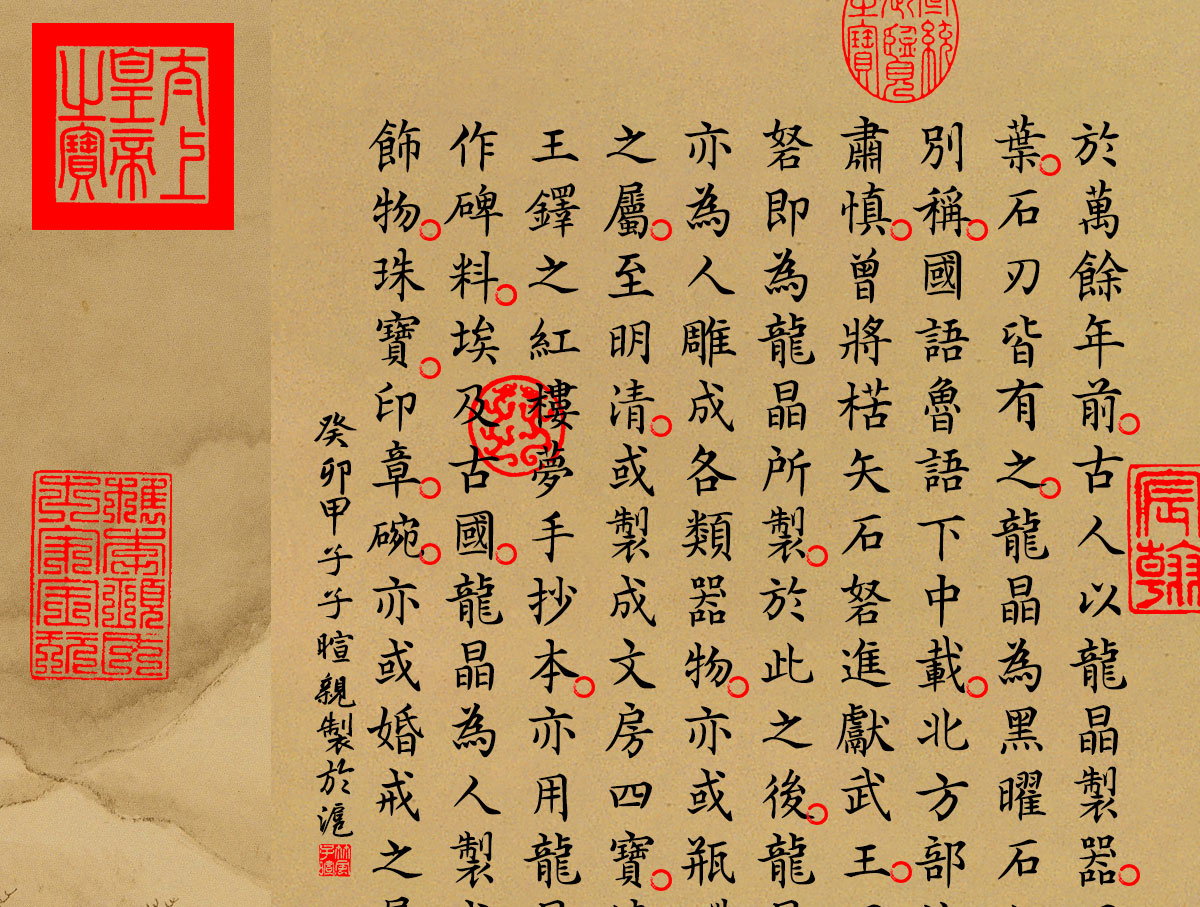 於萬餘年前古人以龍晶製器
葉石刃皆有之龍晶為黑曜石
別稱國語魯語下中載北方部
肅慎曾將楛矢石砮進獻武王
砮即為龍晶所製於此之後龍
亦為人雕成各類器物亦或瓶
之屬至明清或製成文房四寶
王鐸之紅樓夢手抄本亦用龍
作碑料埃及古國龍晶為人製
飾物珠寶印章碗亦或婚戒之
癸卯甲子子暄親製於滬
太上
皇帝
之寶
宸翰